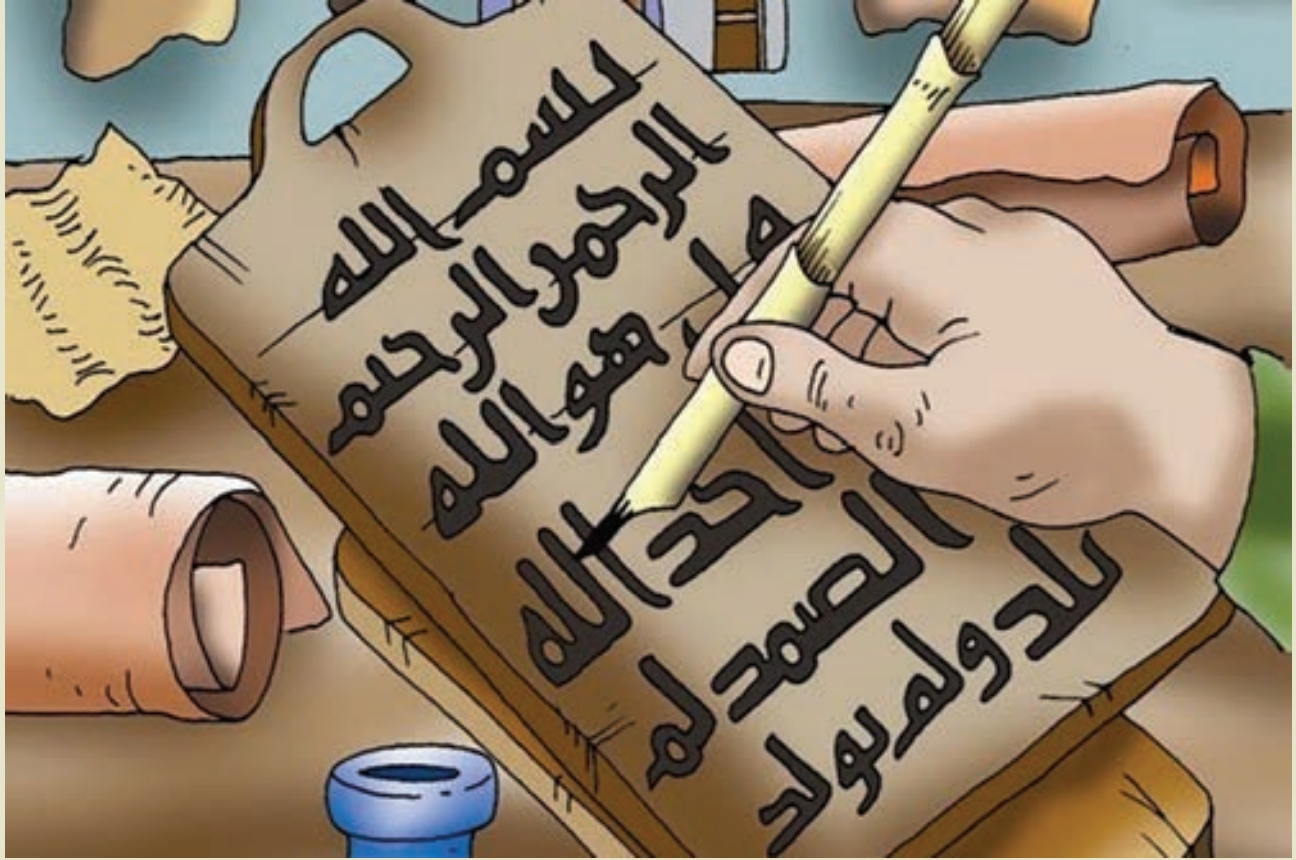 بسم الله
الرحمن الرحيم
قل هو الله
احد الله
الصمد لم
يلد ولم يولد